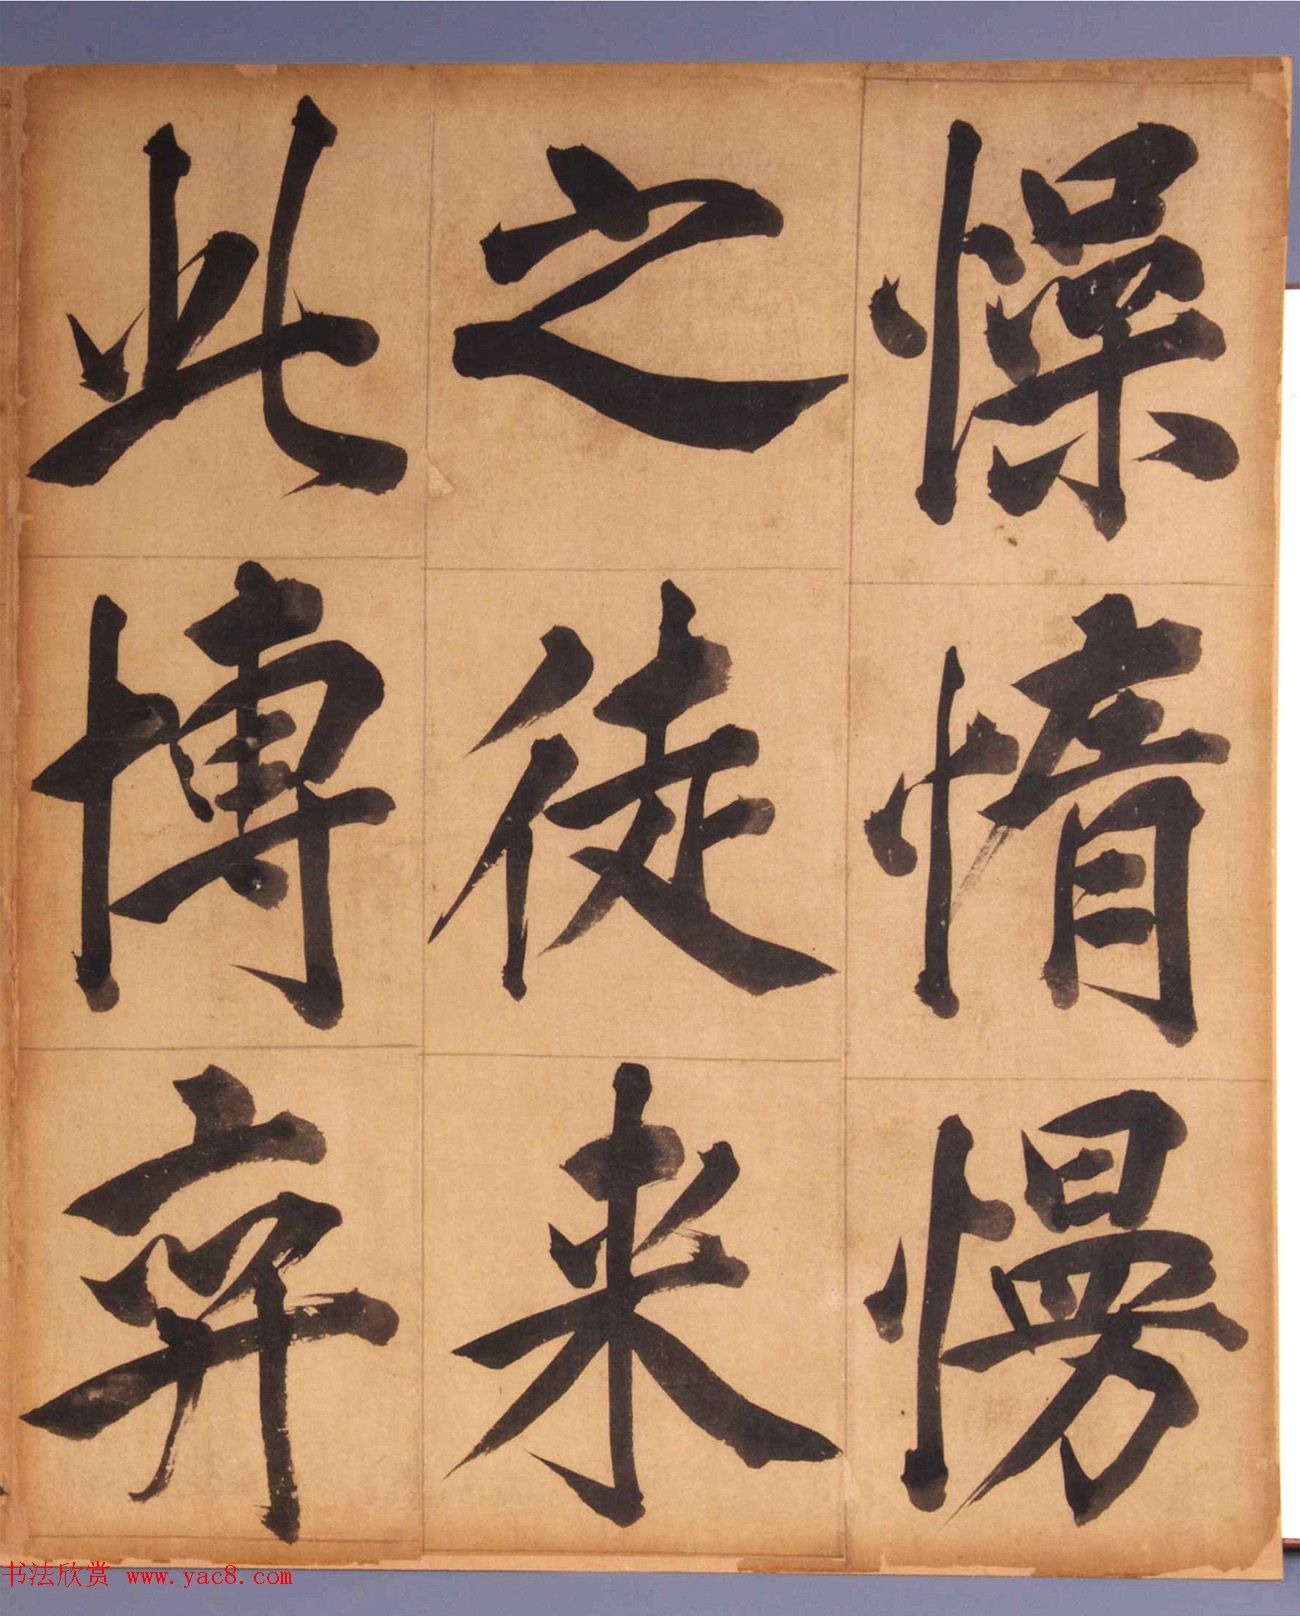 懆惰慢
之徒来
此博弈
书法欣赏 www.yac8.com